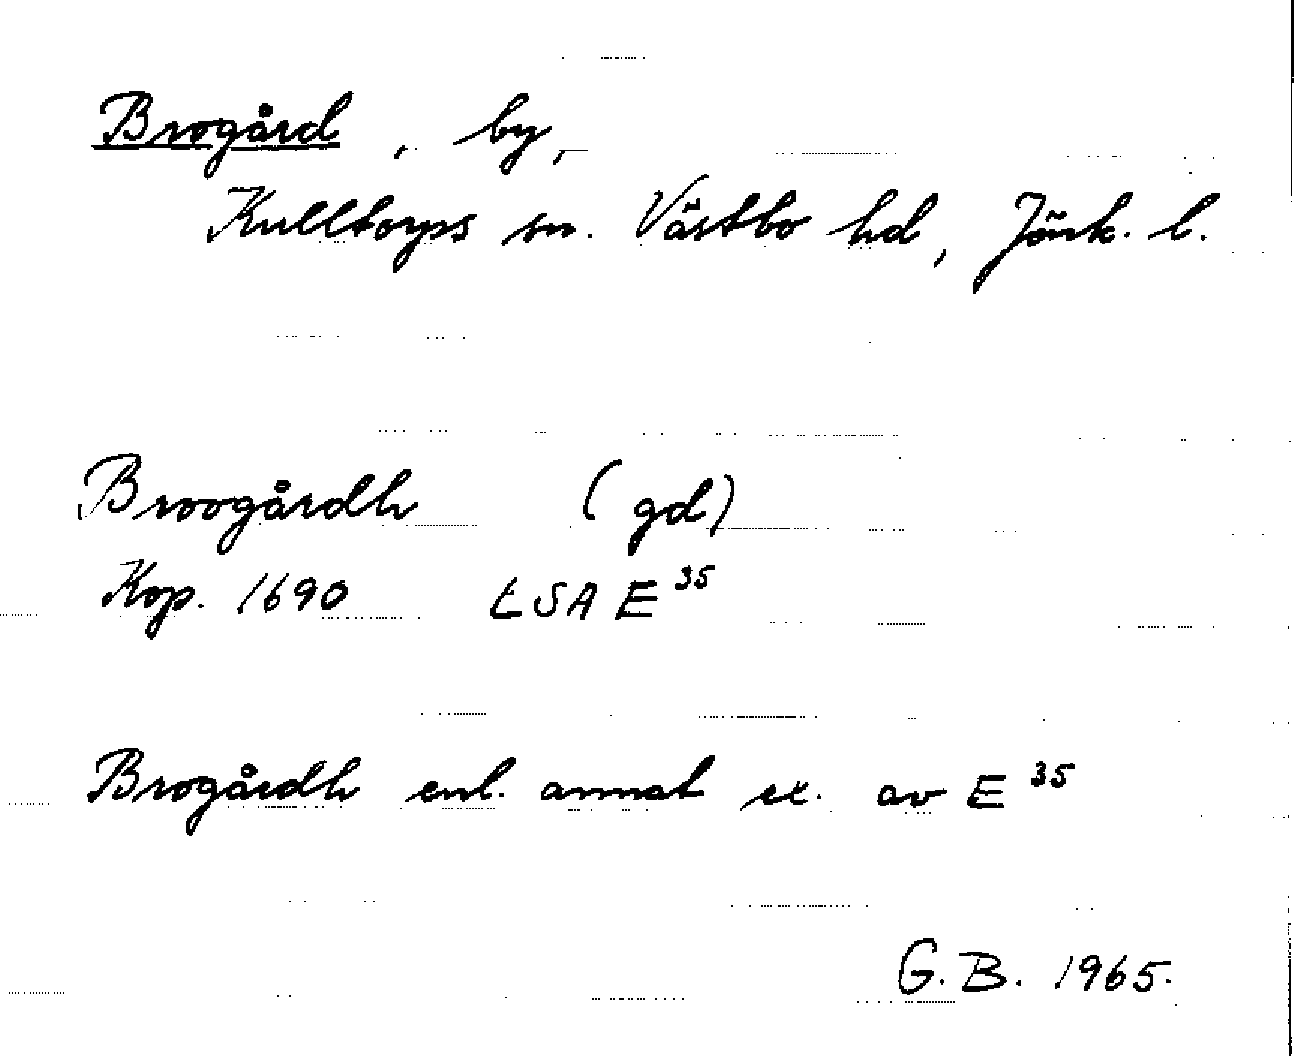 Brogård, by,
Kulltorps sn. Västbo hd, Jönk. l.
Broogårdh (gd)
Kop. 1690 LSA E³⁵
Brogårdh enl. annat ex. av E³⁵
G.B. 1965.